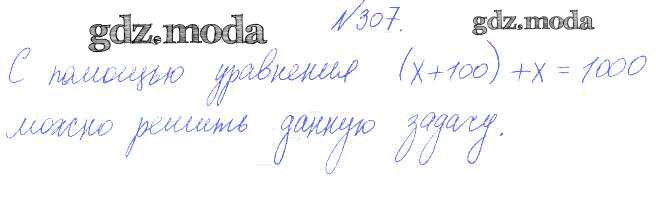 gdz.moda №307. gdz.moda
С помощью уравнения (х+100)+х=1000
можно решить данную задачу.